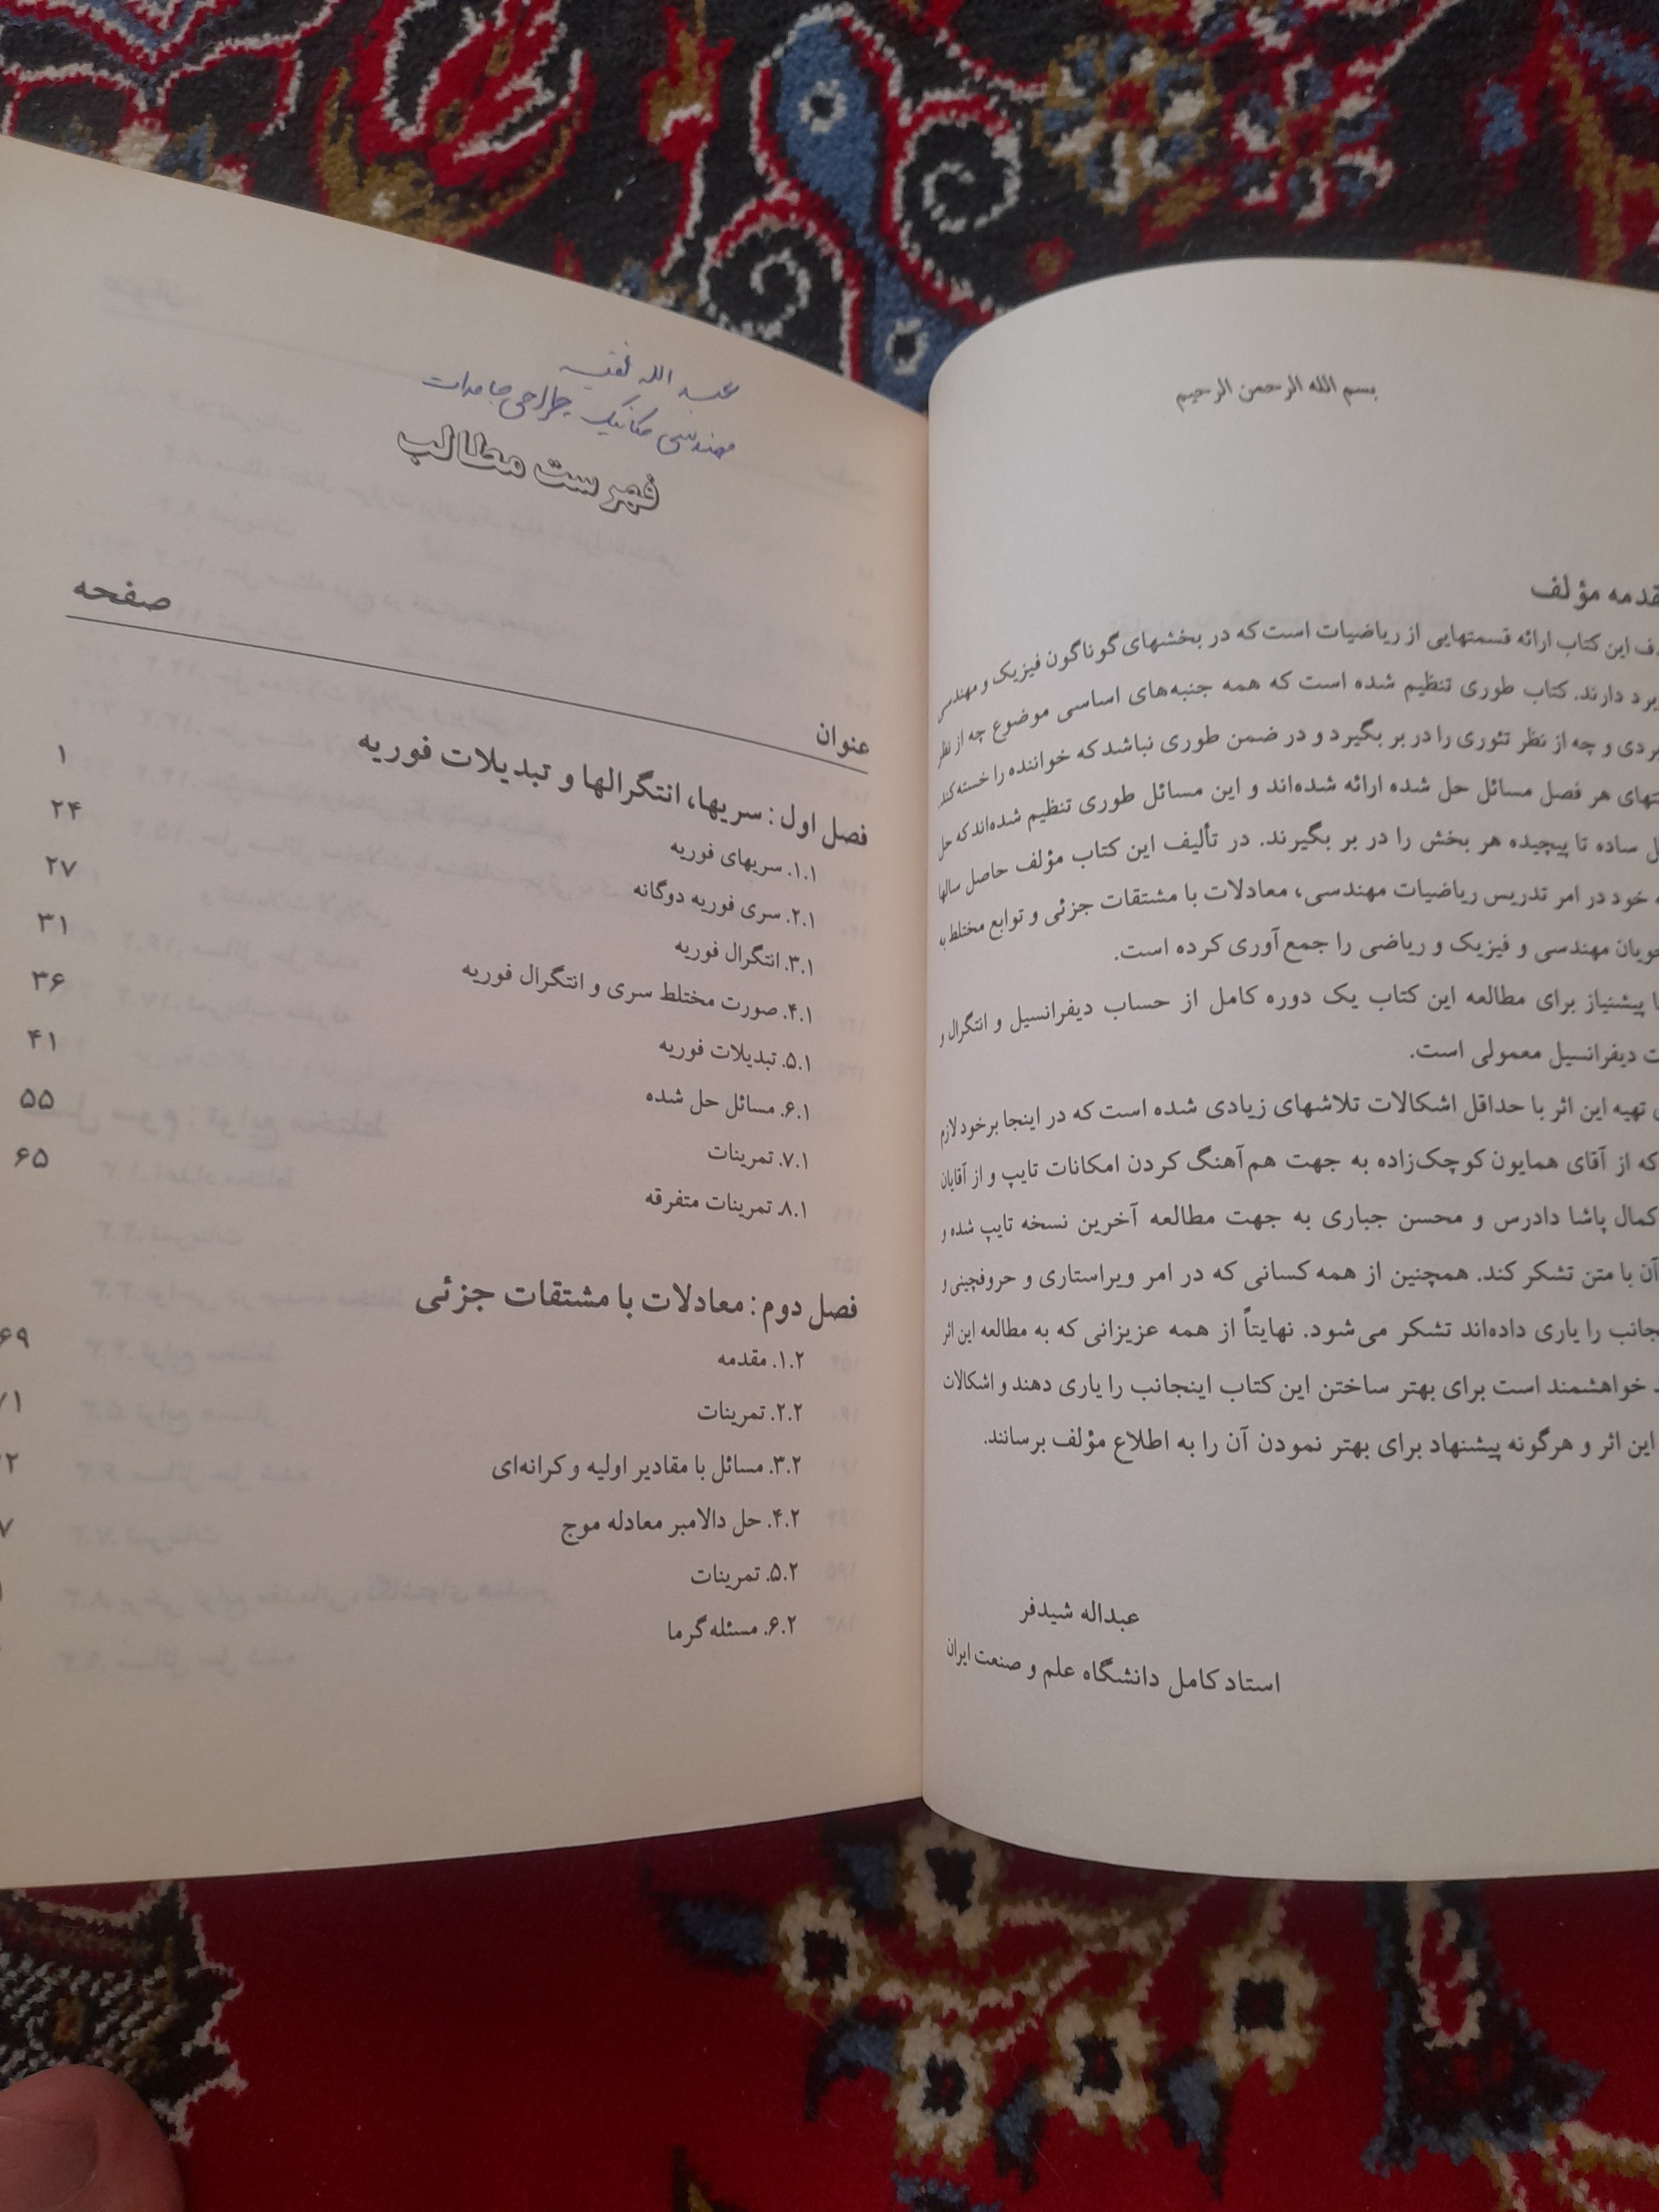 بسم الله الرحمن الرحیم
مؤلف
این کتاب ارائه قسمتهایی از ریاضیات است که در بخشهای گوناگون فیزیک و مهندسی
دارند. کتاب طوری تنظیم شده است که همه جنبه‌های اساسی موضوع چه از نظر
و چه از نظر تئوری را در بر بگیرد و در ضمن طوری نباشد که خواننده را خسته کند.
هر فصل مسائل حل شده ارائه شده‌اند و این مسائل طوری تنظیم شده‌اند که حل
ساده تا پیچیده هر بخش را در بر بگیرند. در تألیف این کتاب مؤلف حاصل سالها
خود در امر تدریس ریاضیات مهندسی، معادلات با مشتقات جزئی و توابع مختلط به
مهندسی و فیزیک و ریاضی را جمع‌آوری کرده است.
پیشنیاز برای مطالعه این کتاب یک دوره کامل از حساب دیفرانسیل و انتگرال و
دیفرانسیل معمولی است.
تهیه این اثر با حداقل اشکالات تلاشهای زیادی شده است که در اینجا برخود لازم
که از آقای همایون کوچک‌زاده به جهت هم‌آهنگ کردن امکانات تایپ و از آقایان
کمال پاشا دادرس و محسن جباری به جهت مطالعه آخرین نسخه تایپ شده و
آن با متن تشکر کند. همچنین از همه کسانی که در امر ویراستاری و حروفچینی و
را یاری داده‌اند تشکر می‌شود. نهایتاً از همه عزیزانی که به مطالعه این اثر
خواهشمند است برای بهتر ساختن این کتاب اینجانب را یاری دهند و اشکالات
این اثر و هرگونه پیشنهاد برای بهتر نمودن آن را به اطلاع مؤلف برسانند.
عبداله شیدفر
استاد کامل دانشگاه علم و صنعت ایران
عبد الله
مهندسی مکانیک طراحی جامدات
فهرست مطالب
عنوان صفحه
فصل اول: سریها، انتگرالها و تبدیلات فوریه
۱.۱. سریهای فوریه ۱
۲.۱. سری فوریه دوگانه ۲۴
۳.۱. انتگرال فوریه ۲۷
۴.۱. صورت مختلط سری و انتگرال فوریه ۳۱
۵.۱. تبدیلات فوریه ۳۶
۶.۱. مسائل حل شده ۴۱
۷.۱. تمرینات ۵۵
۸.۱. تمرینات متفرقه ۶۵
فصل دوم: معادلات با مشتقات جزئی
۱.۲. مقدمه ۶۹
۲.۲. تمرینات
۳.۲. مسائل با مقادیر اولیه و کرانه‌ای
۴.۲. حل دالامبر معادله موج
۵.۲. تمرینات
۶.۲. مسئله گرما